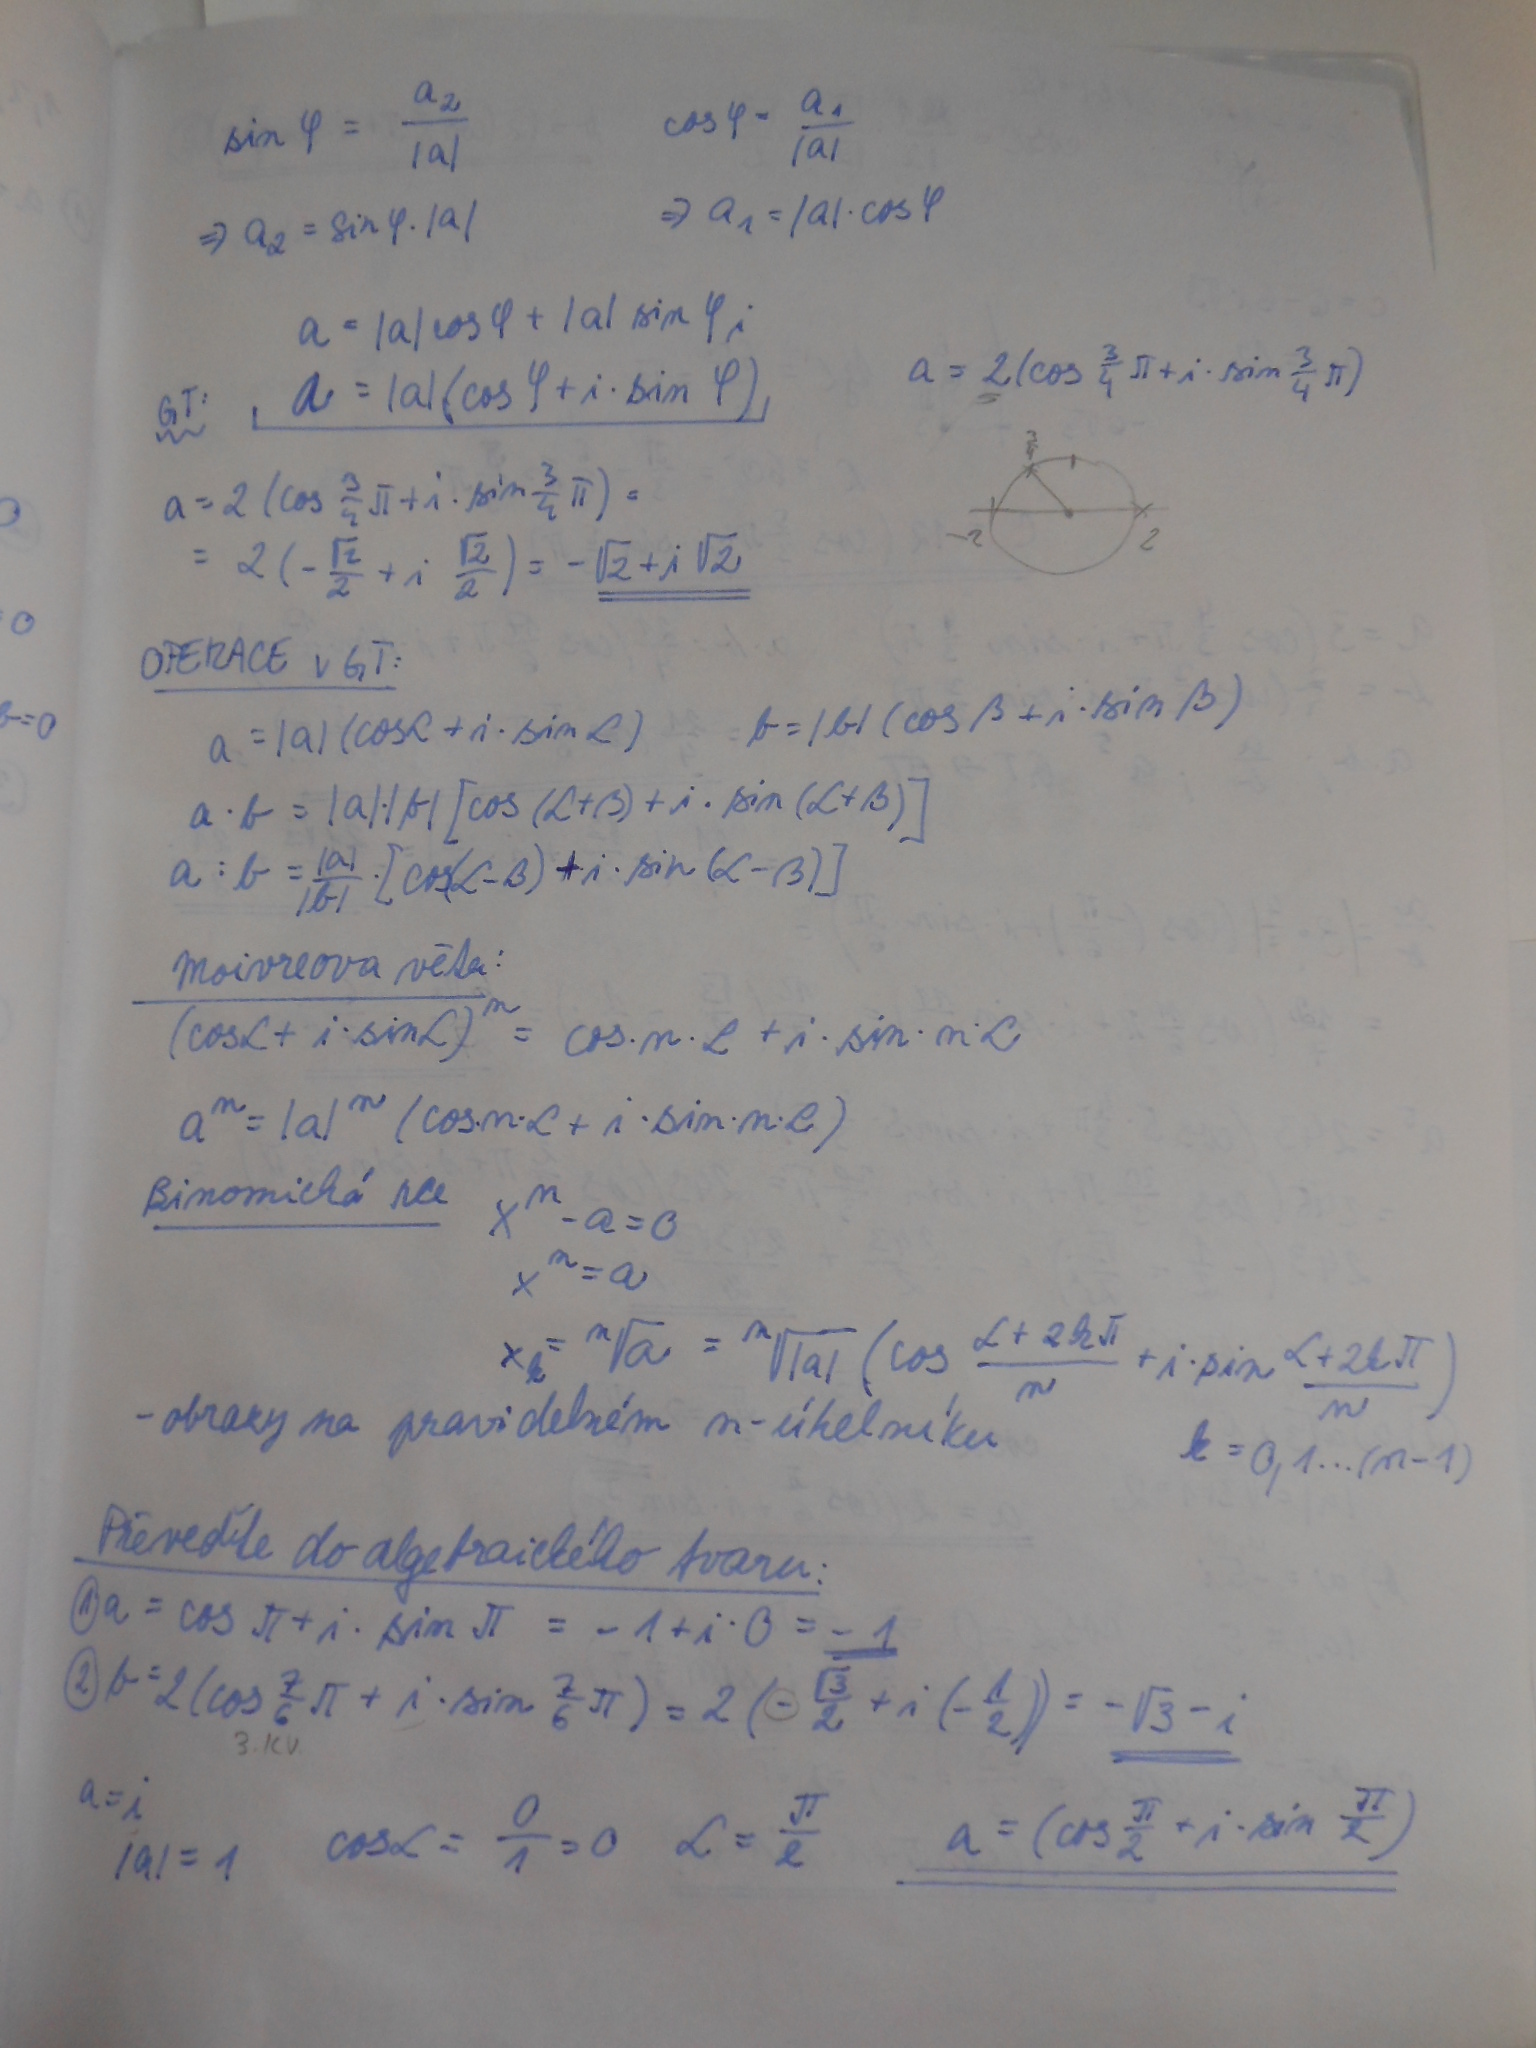 sin φ = a₂/|a|    cos φ = a₁/|a|
⇒ a₂ = sin φ · |a|    ⇒ a₁ = |a| · cos φ
a = |a| cos φ + |a| sin φ i
GT: a = |a| (cos φ + i · sin φ)    a = 2 (cos 3/4 π + i · sin 3/4 π)
a = 2 (cos 3/4 π + i · sin 3/4 π) =
= 2 (- √2/2 + i √2/2) = - √2 + i √2
-2    2
OPERACE V GT:
a = |a| (cos α + i · sin α)    b = |b| (cos β + i · sin β)
a · b = |a| · |b| [cos (α + β) + i · sin (α + β)]
a : b = |a|/|b| · [cos(α - β) + i · sin (α - β)]
Moivreova věta:
(cos α + i · sin α)ⁿ = cos · n · α + i · sin · n · α
aⁿ = |a|ⁿ (cos · n · α + i · sin · n · α)
Binomická rce    xⁿ - a = 0
xⁿ = a
xₖ = ⁿ√a = ⁿ√|a| (cos (α + 2kπ)/n + i · sin (α + 2kπ)/n)
- obrazy na pravidelném n-úhelníku    k = 0, 1 ... (n - 1)
Převeďte do algebraického tvaru:
① a = cos π + i · sin π = - 1 + i · 0 = - 1
② b = 2 (cos 7/6 π + i · sin 7/6 π) = 2 (- √3/2 + i (- 1/2)) = - √3 - i
3. kv.
a = i
|a| = 1    cos α = 0/1 = 0    α = π/2    a = (cos π/2 + i · sin π/2)